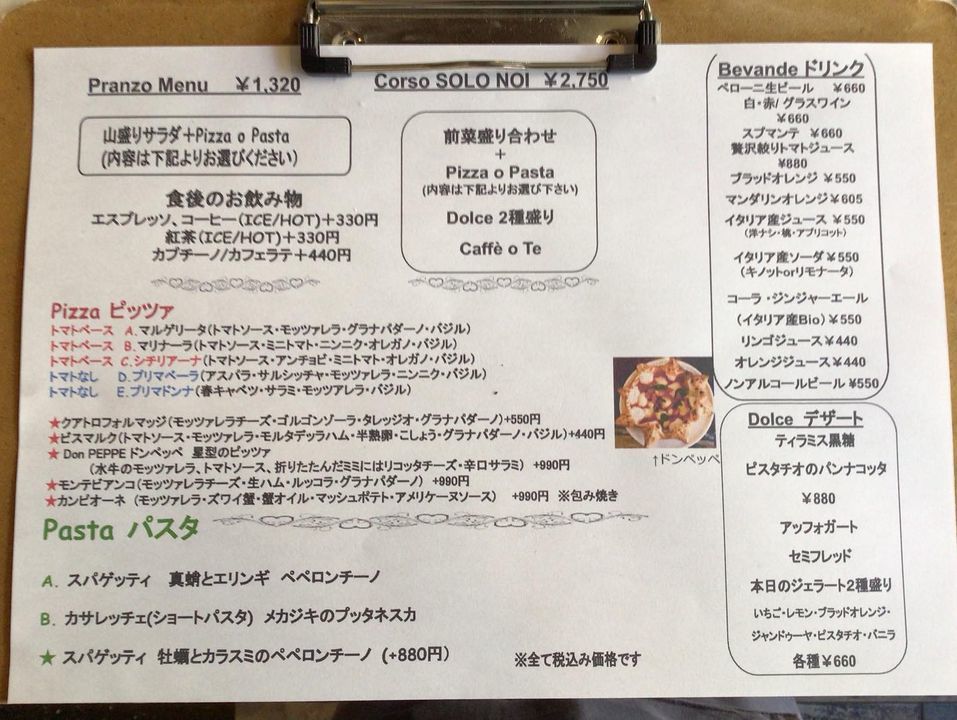 Pranzo Menu　￥1,320
山盛りサラダ＋Pizza o Pasta
(内容は下記よりお選びください)
食後のお飲み物
エスプレッソ、コーヒー(ICE/HOT)＋330円
紅茶(ICE/HOT)＋330円
カプチーノ/カフェラテ＋440円
Corso SOLO NOI　￥2,750
前菜盛り合わせ
+
Pizza o Pasta
(内容は下記よりお選び下さい)
Dolce 2種盛り
Caffè o Te
Pizza ピッツァ
トマトベース　A.マルゲリータ(トマトソース・モッツァレラ・グラナパダーノ・バジル)
トマトベース　B.マリナーラ(トマトソース・ミニトマト・ニンニク・オレガノ・バジル)
トマトベース　C.シチリアーナ(トマトソース・アンチョビ・ミニトマト・オレガノ・バジル)
トマトなし　D.プリマベーラ(アスパラ・サルシッチャ・モッツァレラ・ニンニク・バジル)
トマトなし　E.プリマドンナ(春キャベツ・サラミ・モッツアレラ・バジル)
★クアトロフォルマッジ(モッツァレラチーズ・ゴルゴンゾーラ・タレッジオ・グラナパダーノ)+550円
★ビスマルク(トマトソース・モッツァレラ・モルタデッラハム・半熟卵・こしょう・グラナパダーノ・バジル)+440円
★ Don PEPPE ドンペッペ　星型のピッツァ
(水牛のモッツァレラ、トマトソース、折りたたんだミミにはリコッタチーズ・辛口サラミ)　+990円
★モンテビアンコ(モッツァレラチーズ・生ハム・ルッコラ・グラナパダーノ)　+990円
★カンピオーネ　(モッツァレラ・ズワイ蟹・蟹オイル・マッシュポテト・アメリケーヌソース)　+990円　※包み焼き
↑ドンペッペ
Pasta パスタ
A. スパゲッティ　真蛸とエリンギ　ペペロンチーノ
B. カサレッチェ(ショートパスタ)　メカジキのプッタネスカ
★ スパゲッティ　牡蠣とカラスミのペペロンチーノ　(+880円)
※全て税込み価格です
Bevande ドリンク
ペローニ生ビール　￥660
白・赤/ グラスワイン
￥660
スプマンテ　￥660
贅沢絞りトマトジュース
￥880
ブラッドオレンジ ￥550
マンダリンオレンジ￥605
イタリア産ジュース ￥550
(洋ナシ・桃・アプリコット)
イタリア産ソーダ ￥550
(キノットorリモナータ)
コーラ ・ジンジャーエール
(イタリア産Bio) ￥550
リンゴジュース￥440
オレンジジュース￥440
ノンアルコールビール ¥550
Dolce　デザート
ティラミス黒糖
ピスタチオのパンナコッタ
￥880
アッフォガート
セミフレッド
本日のジェラート2種盛り
いちご・レモン・ブラッドオレンジ・
ジャンドゥーヤ・ピスタチオ・バニラ
各種￥660